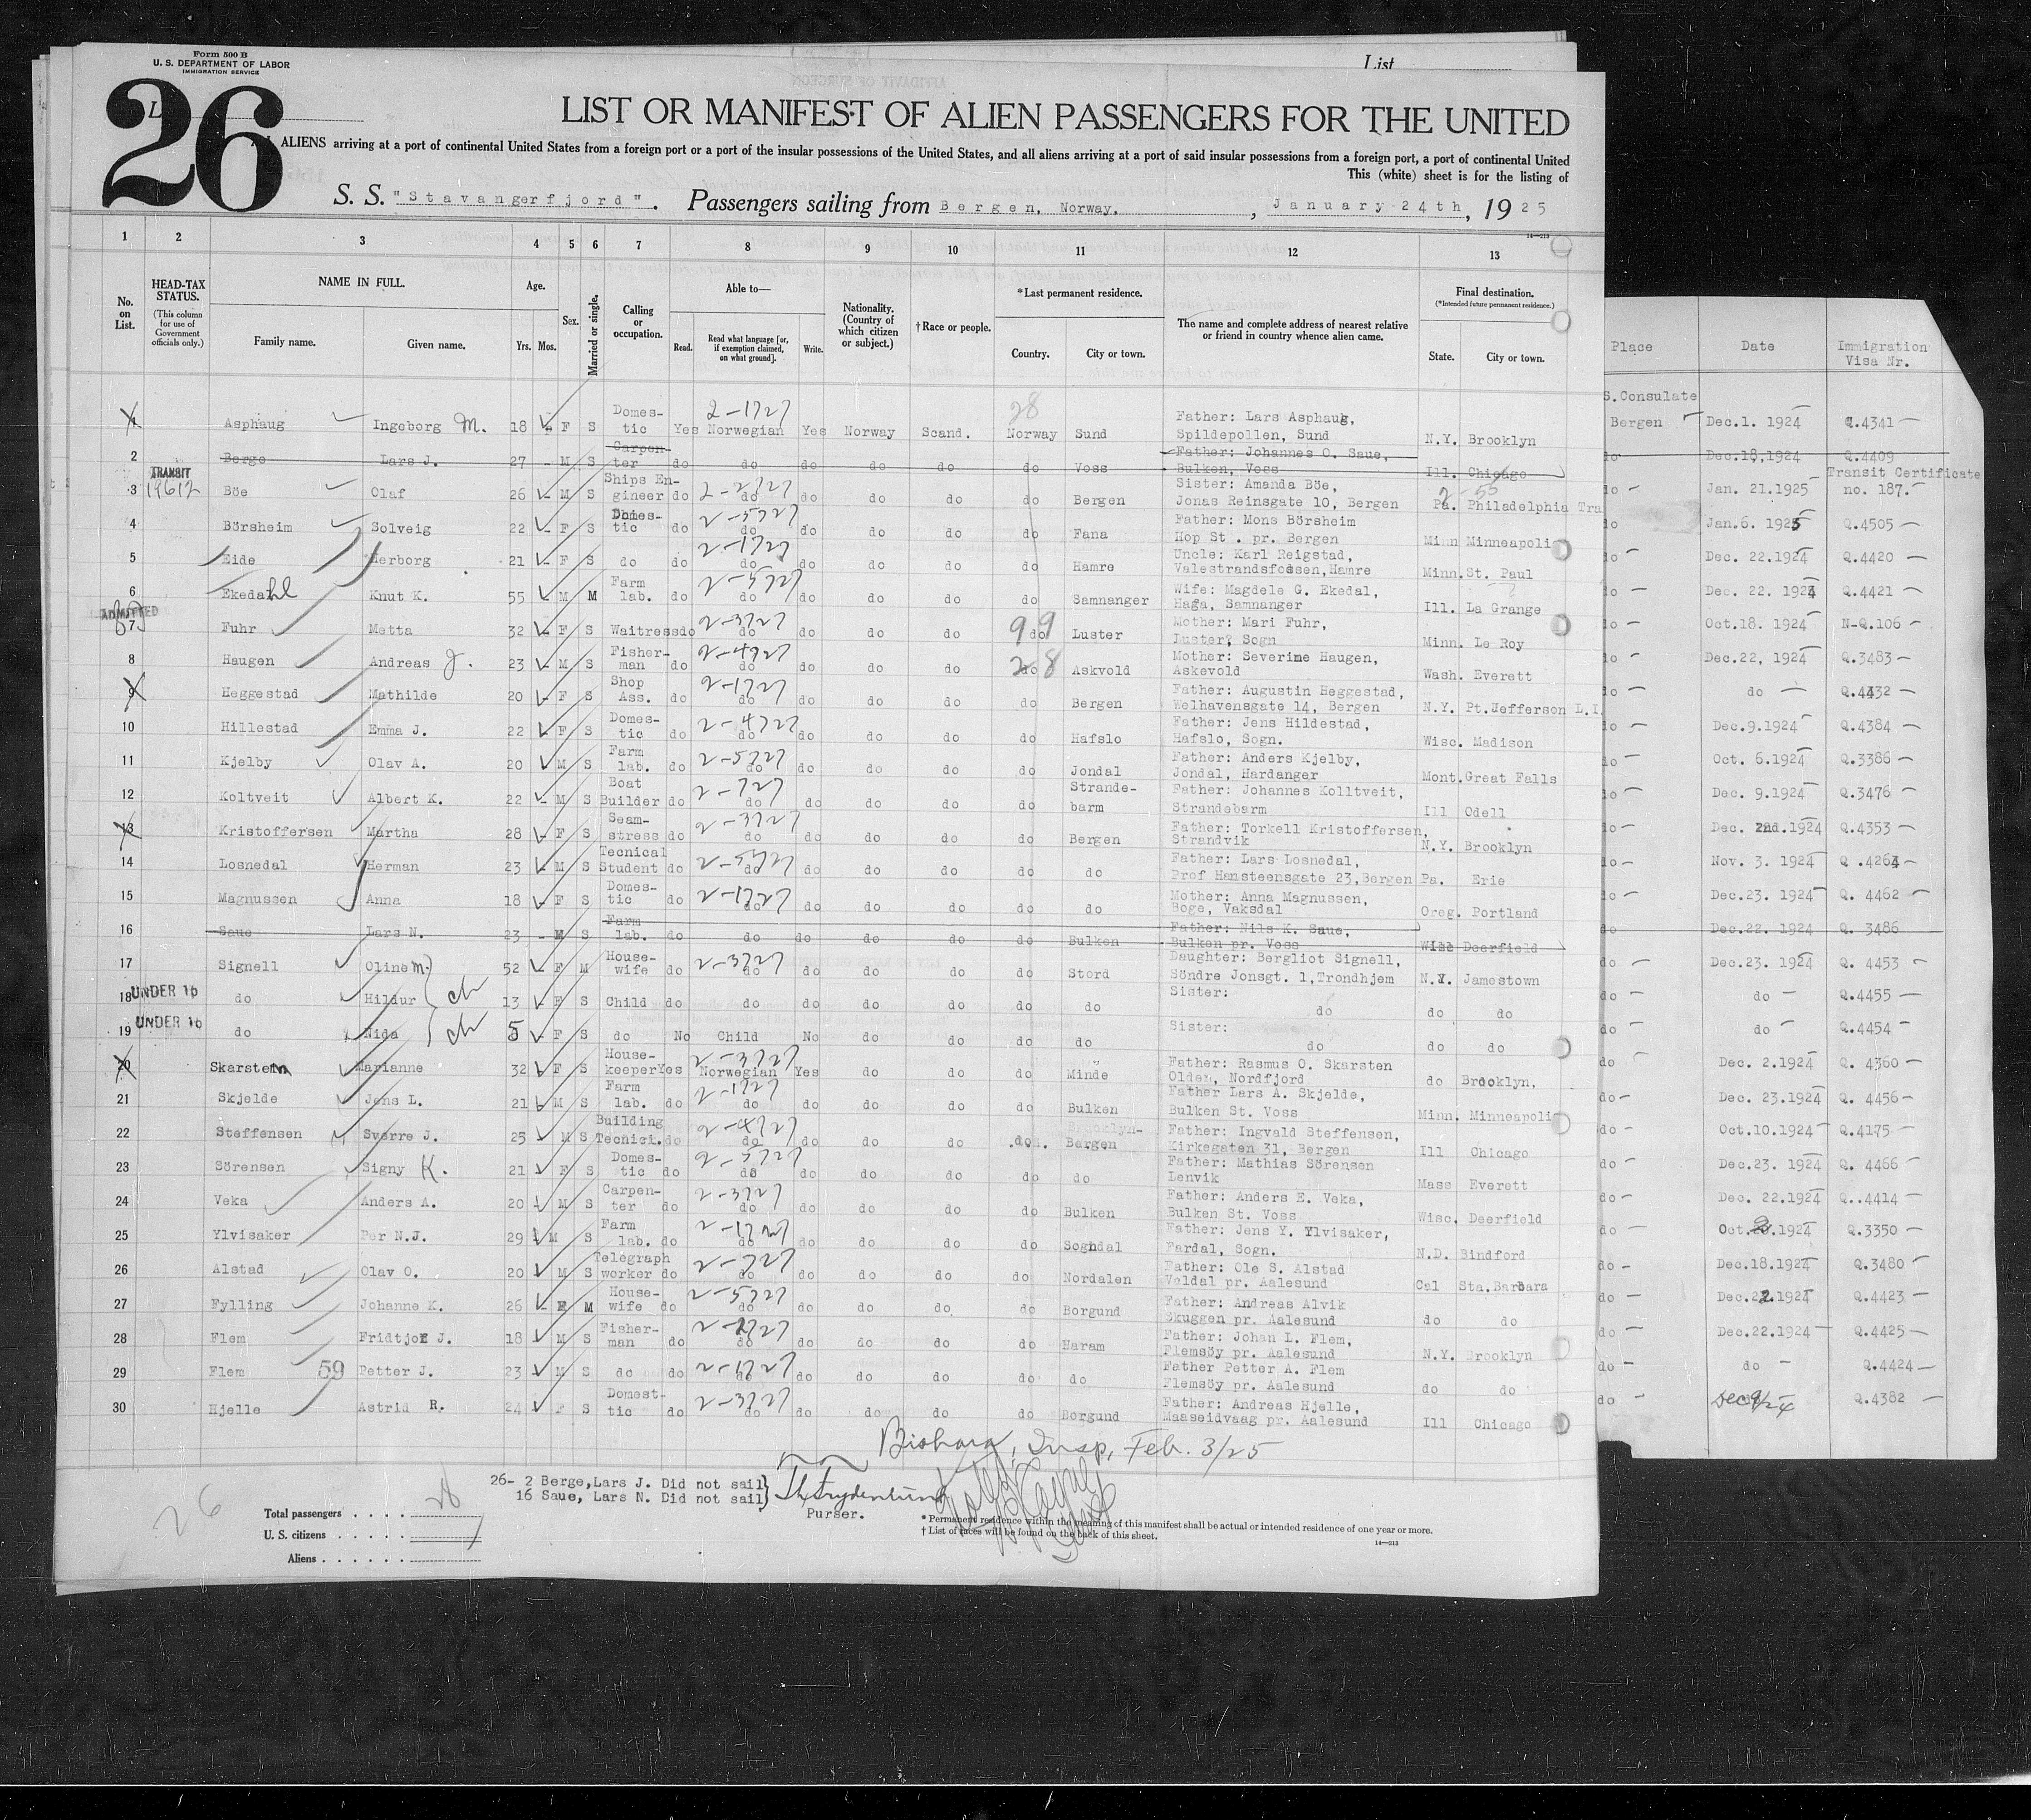 Form 500 B
U. S. DEPARTMENT OF LABOR
IMMIGRATION SERVICE
List
26
LIST OR MANIFEST OF ALIEN PASSENGERS FOR THE UNITED
ALIENS arriving at a port of continental United States from a foreign port or a port of the insular possessions of the United States, and all aliens arriving at a port of said insular possessions from a foreign port, a port of continental United
This (white) sheet is for the listing of
S. S. "Stavangerfjord". Passengers sailing from Bergen, Norway, , January 24th, 1925
14—213
1 2 3 4 5 6 7 8 9 10 11 12 13
No. on List. HEAD-TAX STATUS. (This column for use of Government officials only.) NAME IN FULL. Family name. Given name. Age. Yrs. Mos. Sex. Married or single. Calling or occupation. Able to— Read. Read what language [or, if exemption claimed, on what ground]. Write. Nationality. (Country of which citizen or subject.) †Race or people. *Last permanent residence. Country. City or town. The name and complete address of nearest relative or friend in country whence alien came. Final destination. (*Intended future permanent residence.) State. City or town. Place Date Immigration Visa Nr.
S. Consulate
1 Asphaug Ingeborg M. 18 F S Domes-tic Yes 2-1727 Norwegian Yes Norway Scand. 28 Norway Sund Father: Lars Asphaug, Spildepollen, Sund N.Y. Brooklyn Bergen Dec.1. 1924 Q.4341
2 Berge Lars J. 27 - M S Carpen-ter do do do do do do Voss Father: Johannes O. Saue, Bulken, Voss Ill. Chicago do Dec.18,1924 Q.4409
TRANSIT 19612 3 Böe Olaf 26 - M S Ships En-gineer do 2-2727 do do do do do Bergen Sister: Amanda Böe, Jonas Reinsgate 10, Bergen 2-55 Pa. Philadelphia Tra do Jan. 21.1925 Transit Certificate no. 187.
4 Börsheim Solveig 22 - F S Domes-tic do 2-5727 do do do do do Fana Father: Mons Börsheim Hop St . pr. Bergen Minn Minneapolis do Jan.6. 1925 Q.4505
5 Eide Herborg 21 - F S do do 2-1727 do do do do do Hamre Uncle: Karl Reigstad, Valestrandsfossen,Hamre Minn. St. Paul do Dec. 22.1924 Q.4420
6 Ekedahl Knut K. 55 - M M Farm lab. do 2-5727 do do do do do Samnanger Wife: Magdele G. Ekedal, Haga, Samnanger Ill. La Grange do Dec. 22. 1924 Q.4421
ADMITTED 7 Fuhr Metta 32 - F S Waitress do 2-3727 do do do do 99 do Luster Mother: Mari Fuhr, Luster, Sogn Minn. Le Roy do Oct.18. 1924 N-Q.106
8 Haugen Andreas J. 23 - M S Fisher-man do 2-4727 do do do do 28 do Askvold Mother: Severine Haugen, Askevold Wash. Everett do Dec.22, 1924 Q.3483
9 Heggestad Mathilde 20 - F S Shop Ass. do 2-1727 do do do do do Bergen Father: Augustin Heggestad, Welhavensgate 14, Bergen N.Y. Pt.Jefferson L.I. do do Q.4432
10 Hillestad Emma J. 22 - F S Domes-tic do 2-4727 do do do do do Hafslo Father: Jens Hildestad, Hafslo, Sogn. Wisc. Madison do Dec.9.1924 Q.4384
11 Kjelby Olav A. 20 M S Farm lab. do 2-5727 do do do do do Jondal Father: Anders Kjelby, Jondal, Hardanger Mont. Great Falls do Oct. 6.1924 Q.3386
12 Koltveit Albert K. 22 - M S Boat Builder do 2-727 do do do do do Strande-barm Father: Johannes Kolltveit, Strandebarm Ill Odell do Dec. 9.1924 Q.3476
13 Kristoffersen Martha 28 - F S Seam-stress do 2-3727 do do do do do Bergen Father: Torkell Kristoffersen, Strandvik N.Y. Brooklyn do Dec. 22nd.1924 Q.4353
14 Losnedal Herman 23 - M S Tecnical Student do 2-5727 do do do do do do Father: Lars Losnedal, Prof Hansteensgate 23,Bergen Pa. Erie do Nov. 3. 1924 Q .4263
15 Magnussen Anna 18 - F S Domes-tic do 2-1727 do do do do do do Mother: Anna Magnussen, Boge, Vaksdal Oreg. Portland do Dec.23. 1924 Q. 4462
16 Saue Lars N. 23 - M S Farm lab. do do do do do do Bulken Father: Nils K. Saue, Bulken pr. Voss Deerfield do Dec.22. 1924 Q. 3486
17 Signell Oline M. 52 - F M House-wife do 2-3727 do do do do do Stord Daughter: Bergliot Signell, Söndre Jonsgt. 1,Trondhjem N.Y. Jamestown do Dec.23. 1924 Q. 4453
UNDER 16 18 do Hildur ch 13 - F S Child do do do do do do do Sister: do do do do do Q.4455
UNDER 16 19 do Nida ch 5 - F S do No Child No do do do do Sister: do do do do do Q.4454
20 Skarstein Marianne 32 F S House-keeper Yes 2-3727 Norwegian Yes do do do Minde Father: Rasmus O. Skarsten Olden, Nordfjord do Brooklyn, do Dec. 2.1924 Q. 4360
21 Skjelde Jens L. 21 M S Farm lab. do 2-1727 do do do do do Bulken Father Lars A. Skjelde, Bulken St. Voss Minn. Minneapolis do Dec. 23.1924 Q. 4456
22 Steffensen Sverre J. 25 - M S Building Tecnici. do 2-4727 do do do do do Bergen Father: Ingvald Steffensen, Kirkegaten 31, Bergen Ill Chicago do Oct.10.1924 Q.4175
23 Sörensen Signy K. 21 - F S Domes-tic do 2-5727 do do do do do do Father: Mathias Sörensen Lenvik Mass Everett do Dec.23. 1924 Q. 4466
24 Veka Anders A. 20 - M S Carpen-ter do 2-3727 do do do do do Bulken Father: Anders E. Veka, Bulken St. Voss Wisc. Deerfield do Dec. 22.1924 Q..4414
25 Ylvisaker Per N.J. 29 M S Farm lab. do 2-1727 do do do do do Sogndal Father: Jens Y. Ylvisaker, Fardal, Sogn. N.D. Bindford do Oct. .1924 Q.3350
26 Alstad Olav O. 20 - M S Telegraph worker do 2-727 do do do do do Nordalen Father: Ole S. Alstad Valdal pr. Aalesund Cal Sta.Barbara do Dec.18.1924 Q.3480
27 Fylling Johanne K. 26 - F M House-wife do 2-5727 do do do do do Borgund Father: Andreas Alvik Skuggen pr. Aalesund do do do Dec.22.1924 Q.4423
28 Flem Fridtjof J. 18 - M S Fisher-man do 2-2727 do do do do do Haram Father: Johan L. Flem, Flemsöy pr. Aalesund N.Y. Brooklyn do Dec.22.1924 Q.4425
29 Flem 59 Petter J. 23 - M S do do 2-1727 do do do do do do Father Petter A. Flem Flemsöy pr. Aalesund do do do do Q.4424
30 Hjelle Astrid R. 24 - F S Domest-tic do 2-3727 do do do do do Borgund Father: Andreas Hjelle, Maaseidvaag pr. Aalesund Ill Chicago do Dec 9/24 Q.4382
Bishara, Insp, Feb. 3/25
26- 2 Berge,Lars J. Did not sail
16 Saue, Lars N. Did not sail
Purser.
26
Total passengers . . . .
U. S. citizens . . . . .
Aliens . . . . . .
* Permanent residence within the meaning of this manifest shall be actual or intended residence of one year or more.
† List of races will be found on the back of this sheet.
14—213